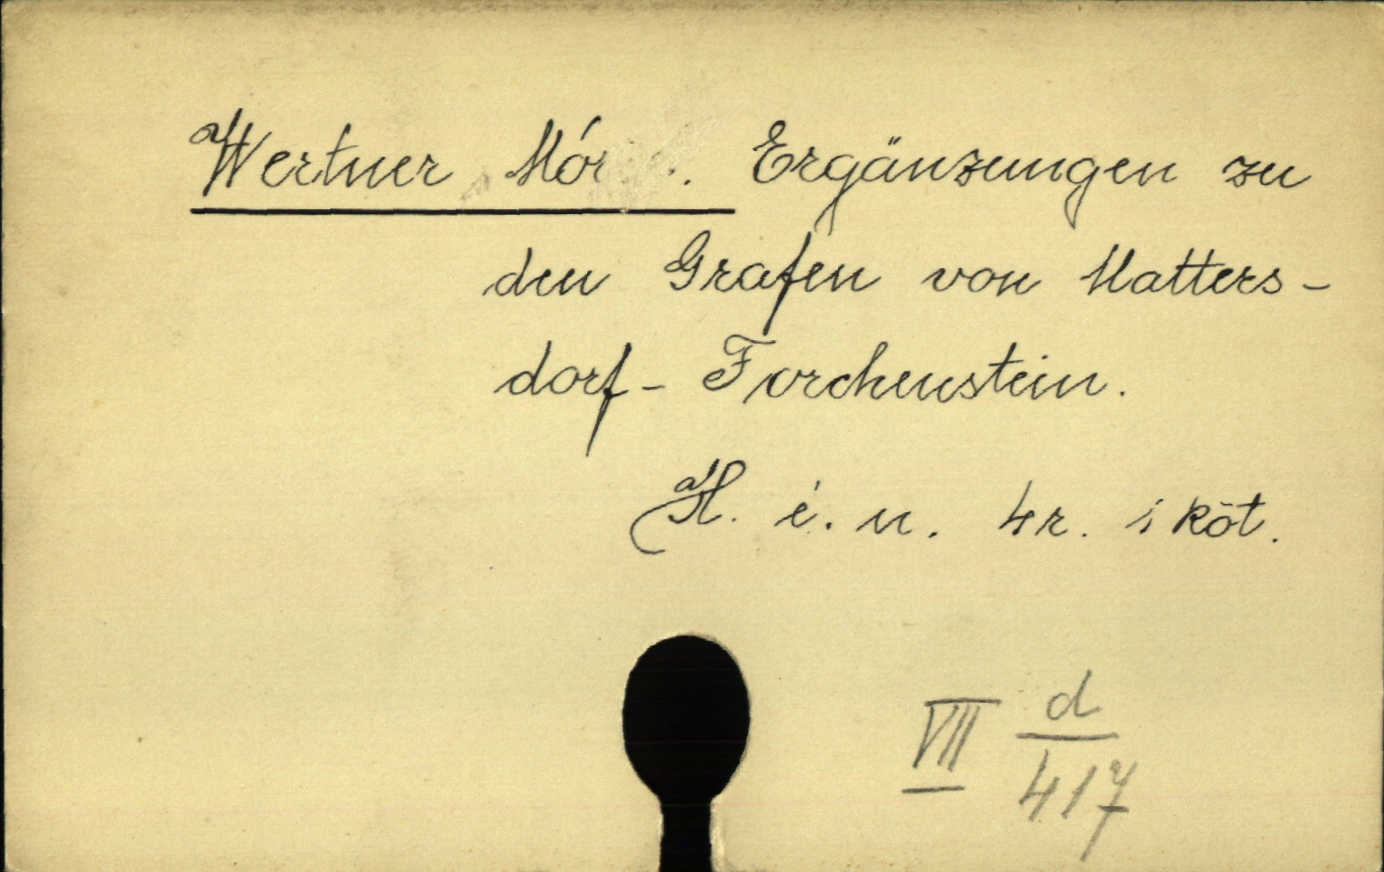 Wertner Mór . Ergänzungen zu
den Grafen von Matters-
dorf- Forchenstein.
H. é. n. 4r. 1 köt.
VII d/417